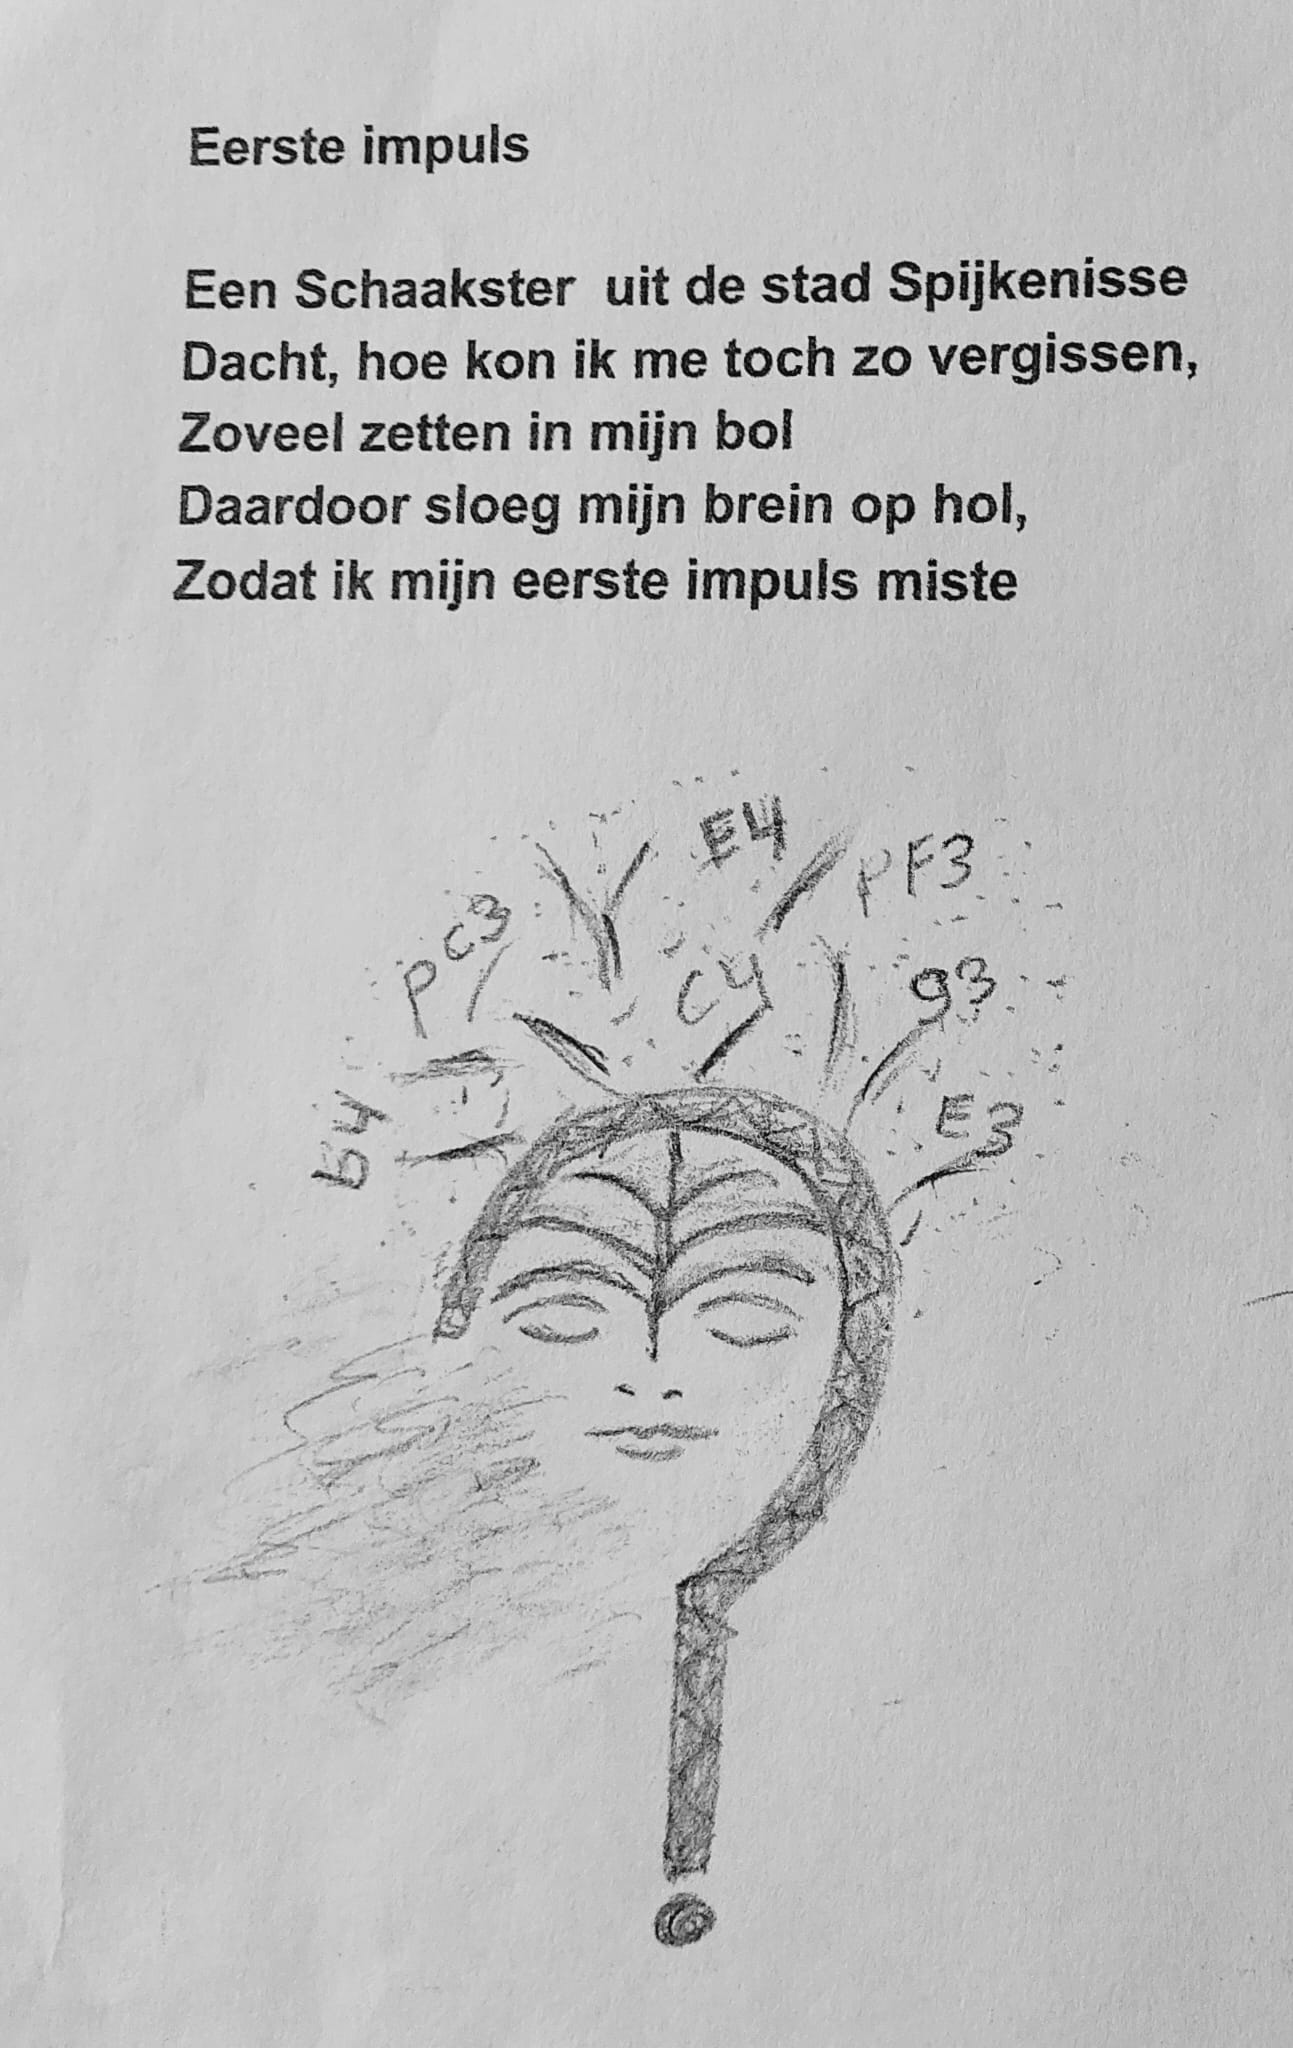 Eerste impuls
Een Schaakster uit de stad Spijkenisse
Dacht, hoe kon ik me toch zo vergissen,
Zoveel zetten in mijn bol
Daardoor sloeg mijn brein op hol,
Zodat ik mijn eerste impuls miste
E4
PF3
PC3
C4
g3
b4
E3